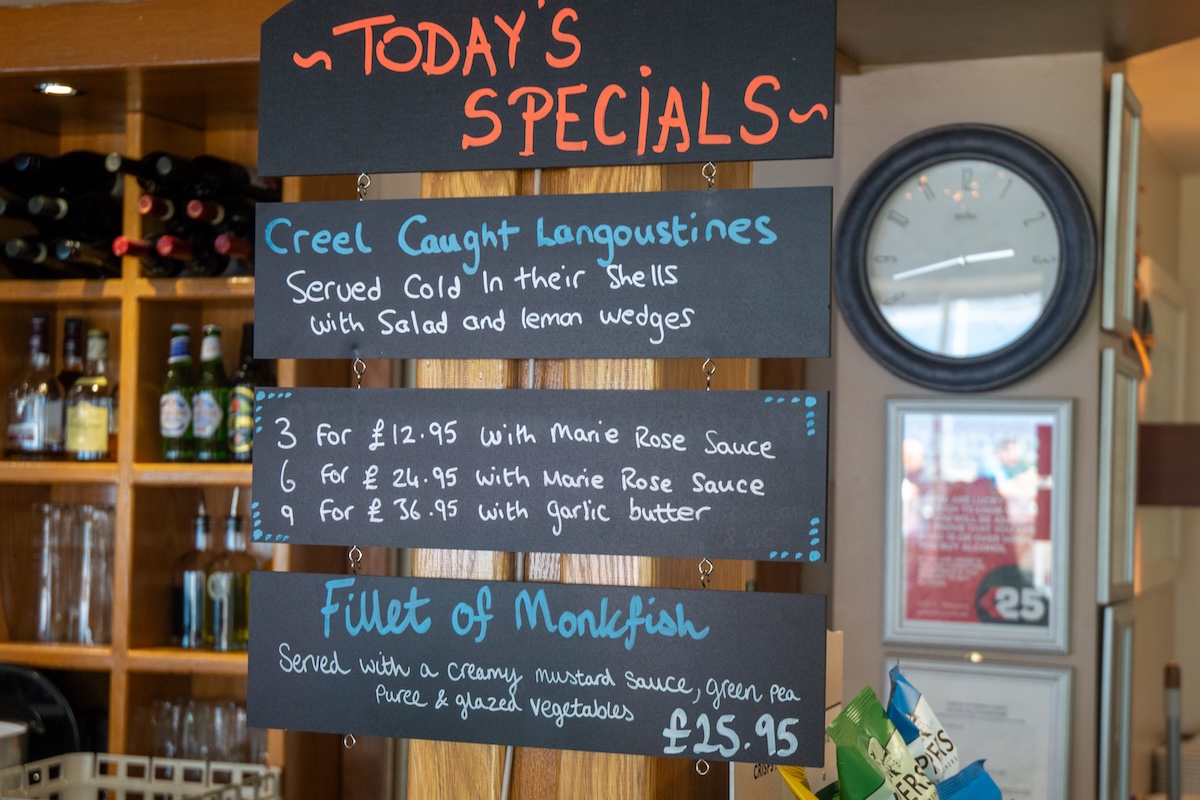 ~ TODAY'S
SPECIALS ~
Creel Caught Langoustines
Served Cold In their Shells
with Salad and lemon wedges
3 For £12.95 with Marie Rose Sauce
6 For £24.95 with Marie Rose Sauce
9 For £36.95 with garlic butter
Fillet of Monkfish
Served with a creamy mustard sauce, green pea
Puree & glazed vegetables
£25.95
25
CRISPS